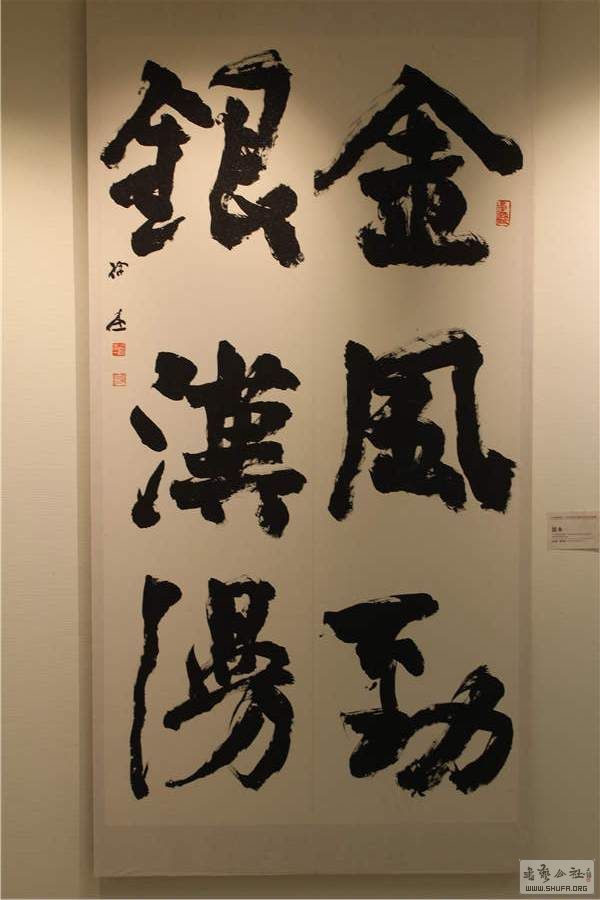 金風勁
銀漢湯
書藝公社
WWW.SHUFA.ORG